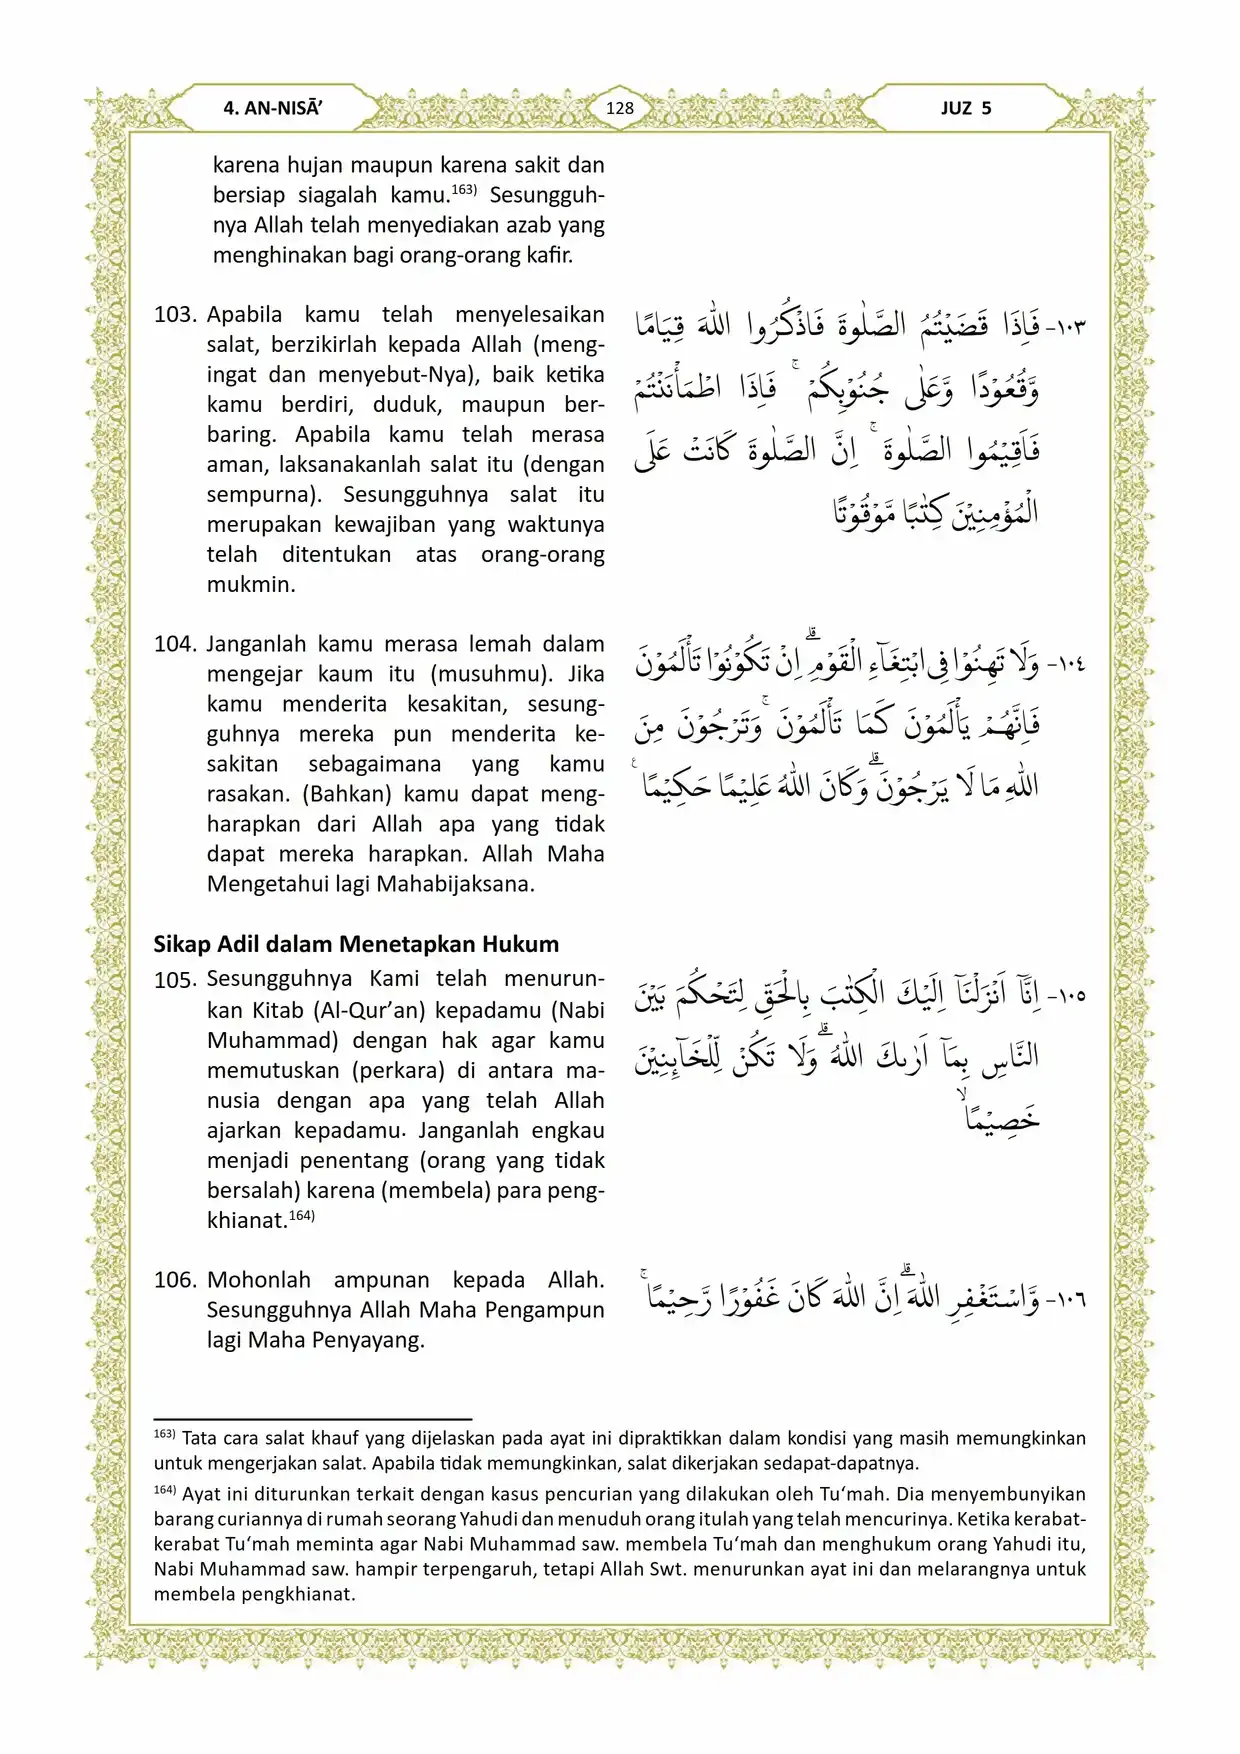 4. AN-NISĀ’
128
JUZ 5
karena hujan maupun karena sakit dan
bersiap siagalah kamu.163) Sesungguh-
nya Allah telah menyediakan azab yang
menghinakan bagi orang-orang kafir.
103. Apabila kamu telah menyelesaikan
salat, berzikirlah kepada Allah (meng-
ingat dan menyebut-Nya), baik ketika
kamu berdiri, duduk, maupun ber-
baring. Apabila kamu telah merasa
aman, laksanakanlah salat itu (dengan
sempurna). Sesungguhnya salat itu
merupakan kewajiban yang waktunya
telah ditentukan atas orang-orang
mukmin.
١٠٣- فَاِذَا قَضَيْتُمُ الصَّلٰوةَ فَاذْكُرُوا اللّٰهَ قِيَامًا
وَّقُعُوْدًا وَّعَلٰى جُنُوْبِكُمْ ۚ فَاِذَا اطْمَأْنَنْتُمْ
فَاَقِيْمُوا الصَّلٰوةَ ۚ اِنَّ الصَّلٰوةَ كَانَتْ عَلَى
الْمُؤْمِنِيْنَ كِتٰبًا مَّوْقُوْتًا
104. Janganlah kamu merasa lemah dalam
mengejar kaum itu (musuhmu). Jika
kamu menderita kesakitan, sesung-
guhnya mereka pun menderita ke-
sakitan sebagaimana yang kamu
rasakan. (Bahkan) kamu dapat meng-
harapkan dari Allah apa yang tidak
dapat mereka harapkan. Allah Maha
Mengetahui lagi Mahabijaksana.
١٠٤- وَلَا تَهِنُوْا فِى ابْتِغَاۤءِ الْقَوْمِ ۗ اِنْ تَكُوْنُوْا تَأْلَمُوْنَ
فَاِنَّهُمْ يَأْلَمُوْنَ كَمَا تَأْلَمُوْنَ ۚ وَتَرْجُوْنَ مِنَ
اللّٰهِ مَا لَا يَرْجُوْنَ ۗ وَكَانَ اللّٰهُ عَلِيْمًا حَكِيْمًا ࣖ
Sikap Adil dalam Menetapkan Hukum
105. Sesungguhnya Kami telah menurun-
kan Kitab (Al-Qur’an) kepadamu (Nabi
Muhammad) dengan hak agar kamu
memutuskan (perkara) di antara ma-
nusia dengan apa yang telah Allah
ajarkan kepadamu. Janganlah engkau
menjadi penentang (orang yang tidak
bersalah) karena (membela) para peng-
khianat.164)
١٠٥- اِنَّآ اَنْزَلْنَآ اِلَيْكَ الْكِتٰبَ بِالْحَقِّ لِتَحْكُمَ بَيْنَ
النَّاسِ بِمَآ اَرٰىكَ اللّٰهُ ۗ وَلَا تَكُنْ لِّلْخَاۤىِٕنِيْنَ
خَصِيْمًا ۙ
106. Mohonlah ampunan kepada Allah.
Sesungguhnya Allah Maha Pengampun
lagi Maha Penyayang.
١٠٦- وَّاسْتَغْفِرِ اللّٰهَ ۗ اِنَّ اللّٰهَ كَانَ غَفُوْرًا رَّحِيْمًا ۚ
163) Tata cara salat khauf yang dijelaskan pada ayat ini dipraktikkan dalam kondisi yang masih memungkinkan
untuk mengerjakan salat. Apabila tidak memungkinkan, salat dikerjakan sedapat-dapatnya.
164) Ayat ini diturunkan terkait dengan kasus pencurian yang dilakukan oleh Tu‘mah. Dia menyembunyikan
barang curiannya di rumah seorang Yahudi dan menuduh orang itulah yang telah mencurinya. Ketika kerabat-
kerabat Tu‘mah meminta agar Nabi Muhammad saw. membela Tu‘mah dan menghukum orang Yahudi itu,
Nabi Muhammad saw. hampir terpengaruh, tetapi Allah Swt. menurunkan ayat ini dan melarangnya untuk
membela pengkhianat.